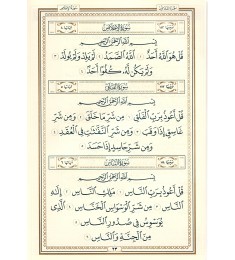 سورة الإخلاص
بسم الله الرحمن الرحيم
قل هو الله أحد ۝ الله الصمد ۝ لم يلد ولم يولد ۝
ولم يكن له كفوا أحد ۝
سورة الفلق
بسم الله الرحمن الرحيم
قل أعوذ برب الفلق ۝ من شر ما خلق ۝ ومن شر
غاسق إذا وقب ۝ ومن شر النفثت في العقد ۝
ومن شر حاسد إذا حسد ۝
سورة الناس
بسم الله الرحمن الرحيم
قل أعوذ برب الناس ۝ ملك الناس ۝ إله
الناس ۝ من شر الوسواس الخناس ۝ الذي
يوسوس في صدور الناس ۝
من الجنة والناس ۝